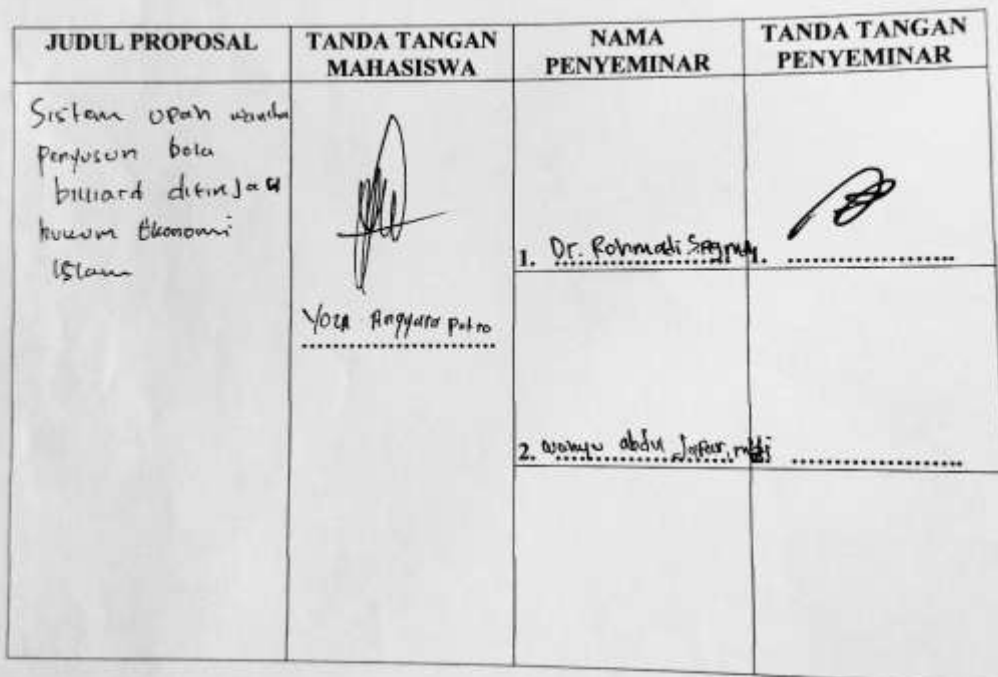 JUDUL PROPOSAL
TANDA TANGAN
MAHASISWA
NAMA
PENYEMINAR
TANDA TANGAN
PENYEMINAR
Sistem upah wanita
penyusun bola
billiard ditinjau
hukum Ekonomi
Islam
Yoza Anggara Putro
1. Dr. Rohmadi
2. wahyu abdul Jafar,